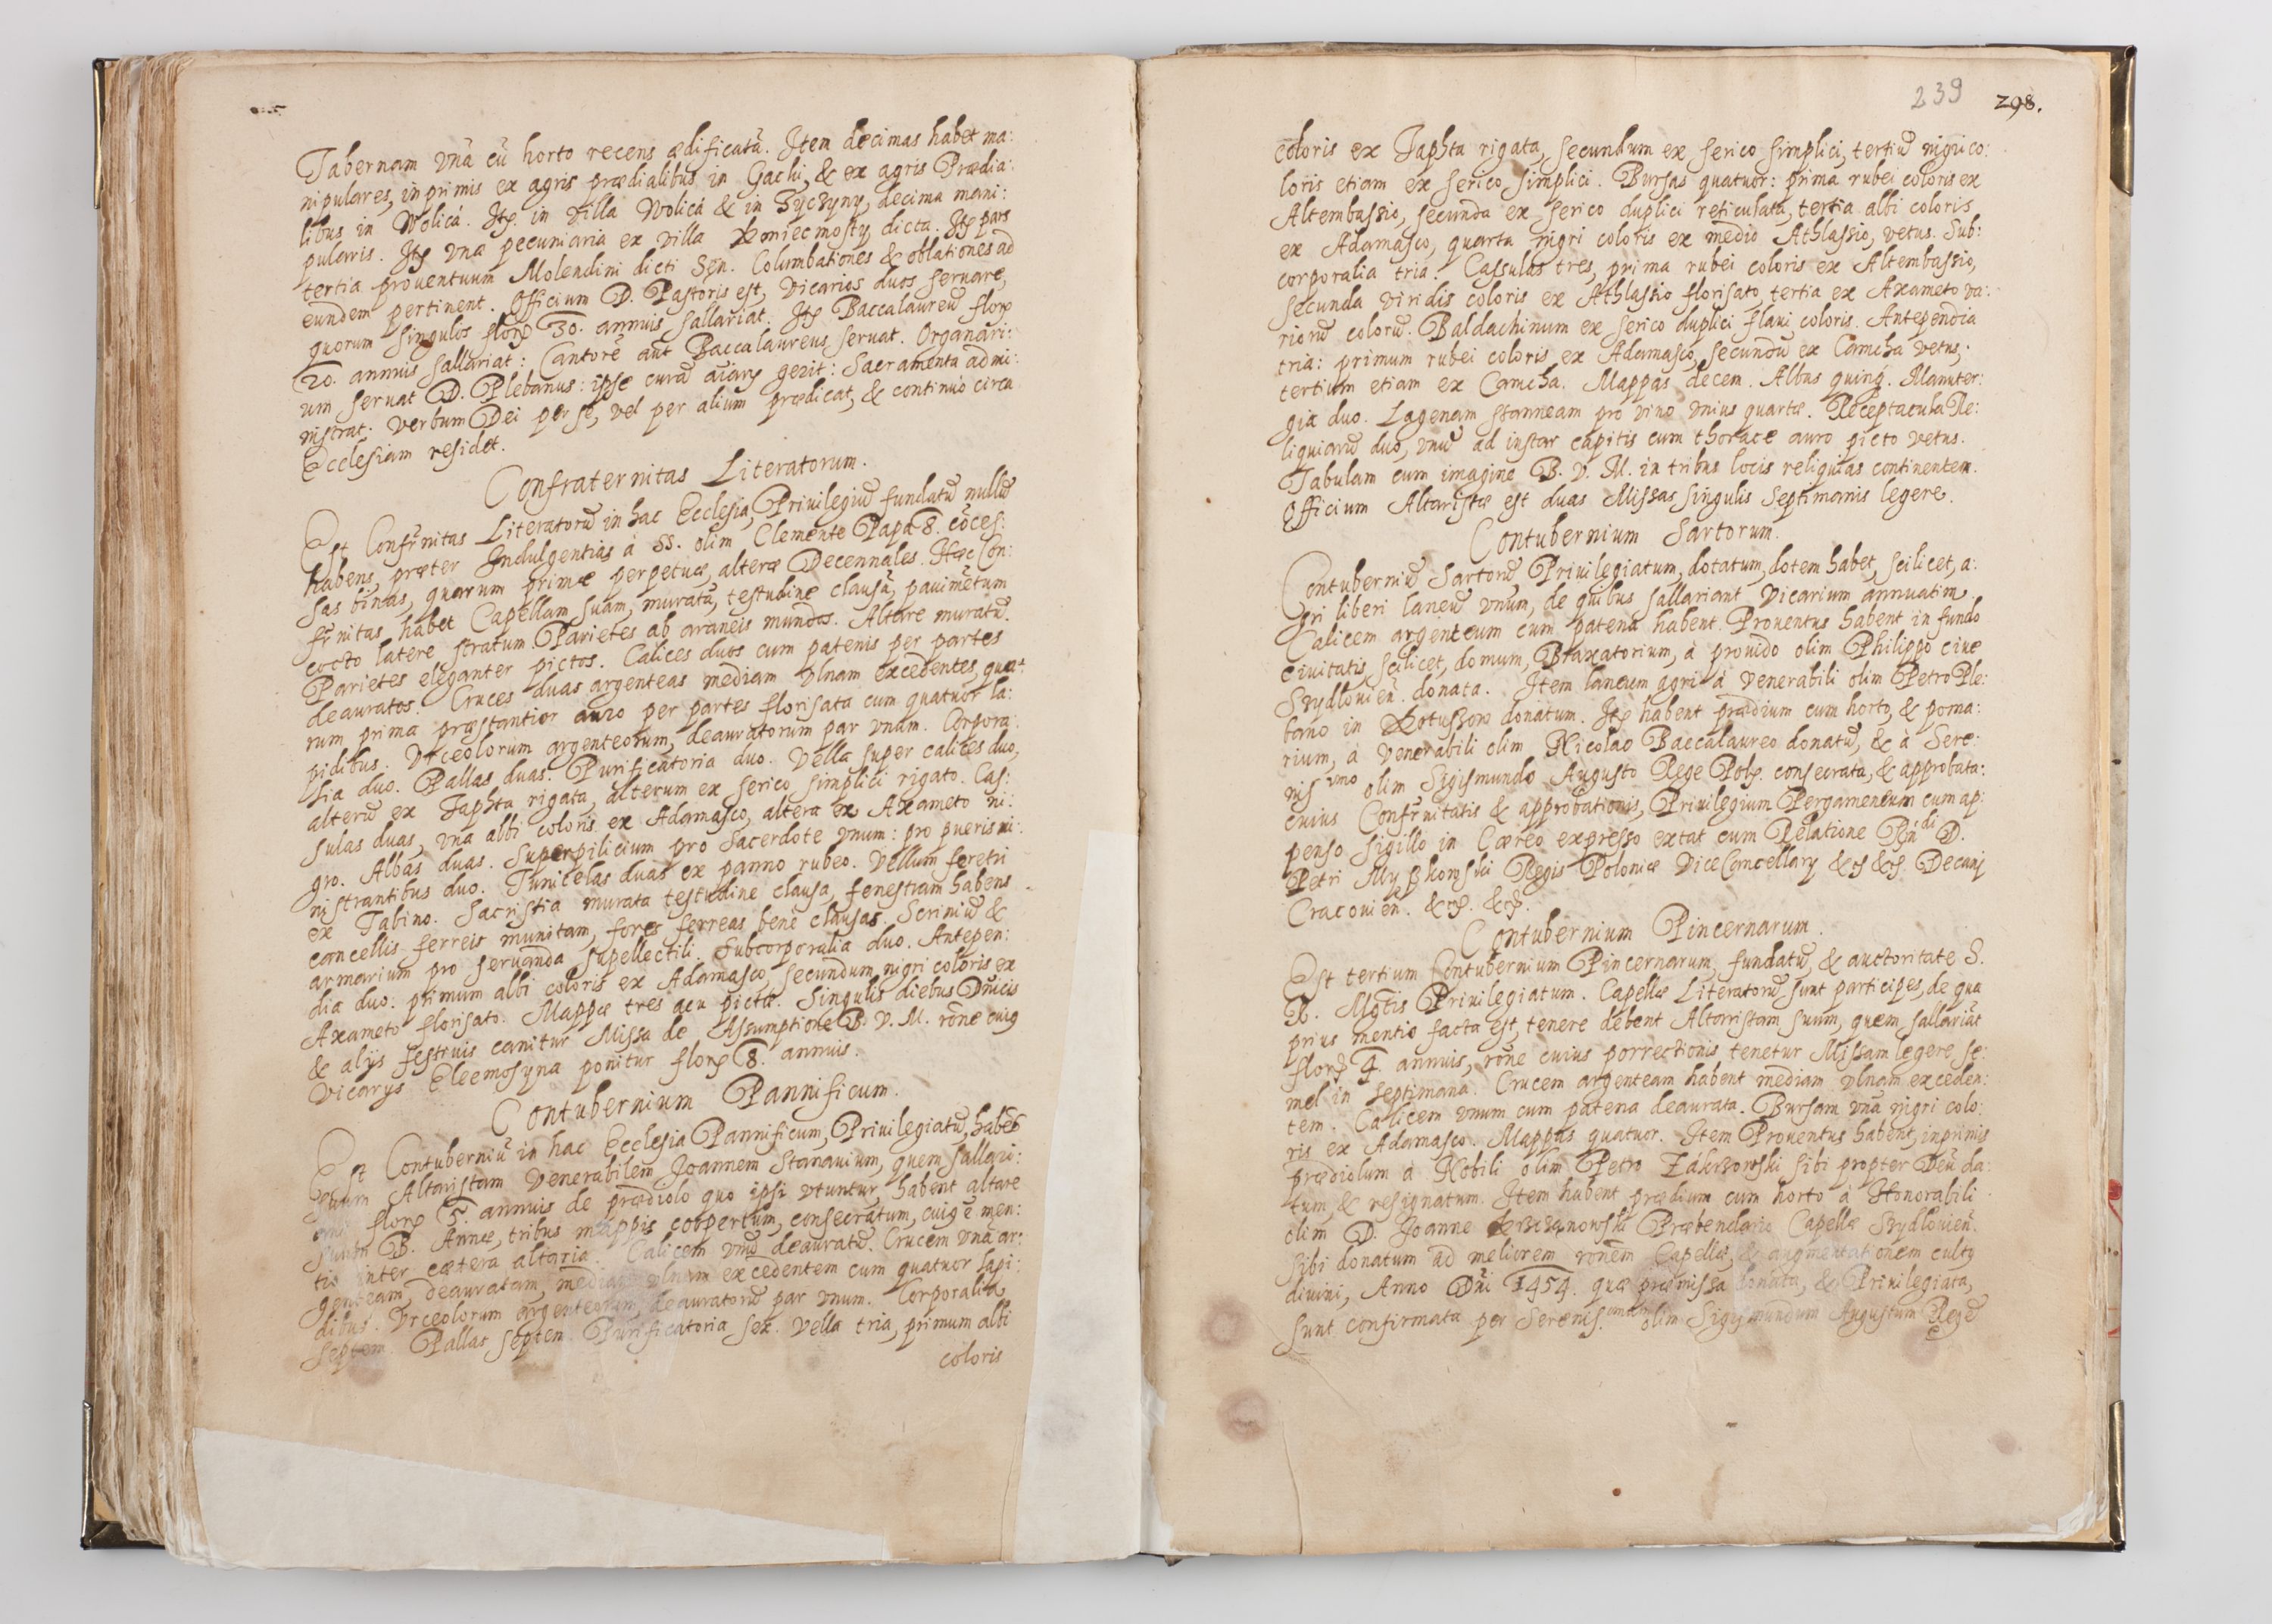 Tabernam vnã cũ horto recens ædificatã. Item decimas habet ma:
nipulares, in primis ex agris prædialibus in Gachi, & ex agris Prædia:
libus in Wolicá. Itẽ in villa Wolicá & in Tyczyny, decima mani:
pularis. Itẽ vna pecuniaria ex villa Koniecmosty dicta. Itẽ pars
tertia prouentuum Molendini dicti Sęn. Columbationes & oblationes ad
eundem pertinent. Officium D. Pastoris est, vicarios duos seruare,
quorum singulos florẽ 30. annuis sallariat. Itẽ Baccalaureũ florẽ
20. annuis sallariat: Cantorẽ aut Baccalaureus seruat. Organari:
um seruat D. Plebanus: ipse curã aiarẽ gerit: Sacramenta admi:
nistrat: verbum Dei per se, vel per alium prædicat, & continuò circa
Ecclesiam residet.
Confraternitas Literatorum.
Est Confr̃nitas Literatorũ in hac Ecclesia, Priuilegiũ fundatũ nullũ
habens, præter Indulgentias à SS. olim Clemente Papa 8. cõces:
sas binas, quarum primæ perpetuæ, alteræ Decennales. Hæc Con:
fr̃nitas habet Capellam suam, muratã, testudine clausã, pauimẽtum
cocto latere stratum. Parietes ab araneis mundos. Altare muratũ.
Parietes eleganter pictos. Calices duos cum patenis per partes
deauratos. Cruces duas argenteas mediam vlnam excedentes, qua:
rum prima præstantior auro per partes florisata cum quatuor la:
pidibus. Vrceolorum argenteorum, deauratorum par vnum. Corpora:
lia duo. Pallas duas. Purificatoria duo. Vella super calices duo,
alterũ ex Taphta rigata, alterum ex serico simplici rigato. Cas:
sulas duas, vnã albi coloris ex Adamasco, altera ex Axameto ni:
gro. Albas duas. Superpilicium pro Sacerdote vnum: pro pueris mi:
nistrantibus duo. Tunicelas duas ex panno rubeo. Vellum feretri
ex Tabino. Sacristia murata testudine clausa, fenestram habens
cancellis ferreis munitam, fores ferreas bene clausas. Scriniũ &
armarium pro seruanda supellectili. Subcorporalia duo. Antepen:
dia duo: primum albi coloris ex Adamasco, secundum nigri coloris ex
Axameto florisato. Mappæ tres acu pictæ. Singulis diebus Dñicis
& alijs festiuis canitur Missa de Assumptione B. V. M. rõne cuig
Vicarijs Eleemosyna ponitur florẽ 8. annuis.
Contubernium Pannificum.
Est Contuberniũ in hac Ecclesia Pannificum, Priuilegiatũ, habet
suum Altaristam Venerabilem Joannem Stanauium, quem sallari:
florẽ 5. annuis de prædiolo quo ipsi vtuntur, habent altare
B. Annæ, tribus mappis coopertum, consecratum, cuig ẽ men:
tio inter cætera altaria. Calicem vnũ deauratũ. Crucem vnã ar:
genteam, deauratam, mediam vlnam excedentem cum quatuor lapi:
dibus. Vrceolorum argenteorum, deauratorũ par vnum. Corporalia
septem. Pallas septem. Purificatoria sex. Vella tria, primum albi
coloris
239 298.
coloris ex Taphta rigata, secundum ex serico simplici, tertiũ nigri co:
loris etiam ex serico simplici. Bursas quatuor: prima rubei coloris ex
Altembassio, secunda ex serico duplici reticulata, tertia albi coloris
ex Adamasco, quarta nigri coloris ex medio Athlassio, vetus. Sub:
corporalia tria. Cassulas tres, prima rubei coloris ex Altembassio,
secunda viridis coloris ex Athlassio florisato, tertia ex Axameto va:
riorũ colorũ. Baldachinum ex serico duplici flaui coloris. Antependia
tria: primum rubei coloris ex Adamasco, secundũ ex Camcha vetus,
tertium etiam ex Camcha. Mappas decem. Albas quinq. Manuter:
gia duo. Lagenam stanneam pro vino vnius quartæ. Receptacula Re:
liquiarũ duo, vnũ ad instar capitis cum thorace auro picto vetus.
Tabulam cum imagine B. V. M. in tribus locis reliquias continentem.
Officium Altaristæ est duas Missas singulis septimanis legere.
Contubernium Sartorum.
Contuberniũ Sartorũ Priuilegiatum, dotatum, dotem habet, scilicet, a:
gri liberi laneũ vnum, de quibus sallariant Vicarium annuatim.
Calicem argenteum cum patena habent. Prouentus habent in fundo
ciuitatis, scilicet, domum, Braxatorium, à prouido olim Philippo ciue
Szydlouieñ. donata. Item laneum agri à venerabili olim Petro Ple:
bano in Kotuszow donatum. Itẽ habent prædium cum horto, & poma:
rium, à venerabili olim Nicolao Baccalaureo donatũ, & à Sere:
nis^imo olim Sigismundo Augusto Rege Polẽ. consecrata, & approbata:
cuius Confr̃nitatis & approbationis, Priuilegium Pergameneum cum ap:
penso Sigillo in Cæreo expresso extat cum Relatione Rñdi D.
Petri Myszkowski Regis Poloniæ Vice Cancellarij &c &c. Decani
Cracouieñ. &c. &c.
Contubernium Pincernarum.
Est tertium Contubernium Pincernarum, fundatũ, & auctoritate S.
R. Mg̃tis Priuilegiatum. Capellæ Literatorũ sunt participes, de qua
prius mentio facta est, tenere debent Altaristam suum, quem sallariãt
florẽ 4. annuis, rõne cuius porrectionis tenetur Missam legere se:
mel in septimana. Crucem argenteam habent mediam vlnam exceden:
tem. Calicem vnum cum patena deaurata. Bursam vnã nigri colo:
ris ex Adamasco. Mappas quatuor. Item Prouentus habent, inprimis
prædiolum à Nobili olim Petro Zákrzowski sibi propter Deũ da:
tum, & resignatum. Item habent prædium cum horto à Honorabili
olim D. Joanne Præbendario Capellæ Szydlouieñ.
sibi donatum ad meliorem ronẽm Capellæ, & augmentationem cultg
diuini, Anno Dñi 1454. quæ præmissa donata, & Priuilegiata,
sunt confirmata per Serenis.^imum olim Sigismundum Augustum Regẽ